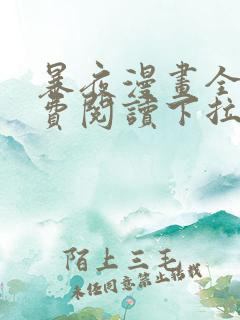 暴夜漫畫全
費閱讀下拉
陌上三毛
未经同意禁止搭载